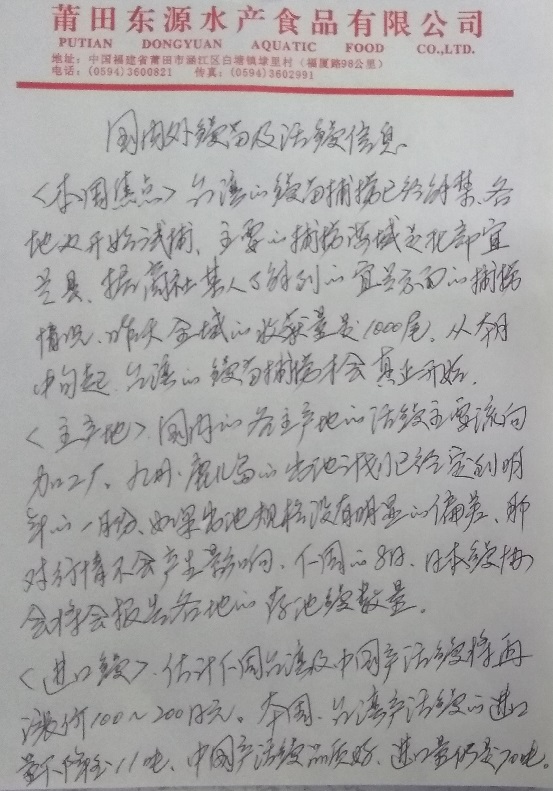 莆田东源水产食品有限公司
PUTIAN DONGYUAN AQUATIC FOOD CO.,LTD.
地址：中国福建省莆田市涵江区白塘镇埭里村（福厦路98公里）
电话：(0594)3600821 传真：(0594)3602991
国内外鳗苗及活鳗信息
〈本周焦点〉台湾的鳗苗捕捞已经解禁、各
地也开始试捕、主要的捕捞海域是北部宜
兰县、据商社某人了解到的宜兰方面的捕捞
情况、昨天全域的收获量是1000尾。从本月
中旬起、台湾的鳗苗捕捞才会真正开始。
〈主产地〉国内的各主产地的活鳗主要流向
加工厂。九州·鹿儿岛的出池计划已经定到明
年的一月份、如果出池规格没有明显的偏差、那
对行情不会产生影响、下周的8日、日本鳗协
会将会报告各地的存池鳗数量。
〈进口鳗〉估计下周台湾及中国产活鳗将再
涨价100～200日元。本周、台湾产活鳗的进口
量下降至11吨、中国产活鳗品质好、进口量仍是70吨。